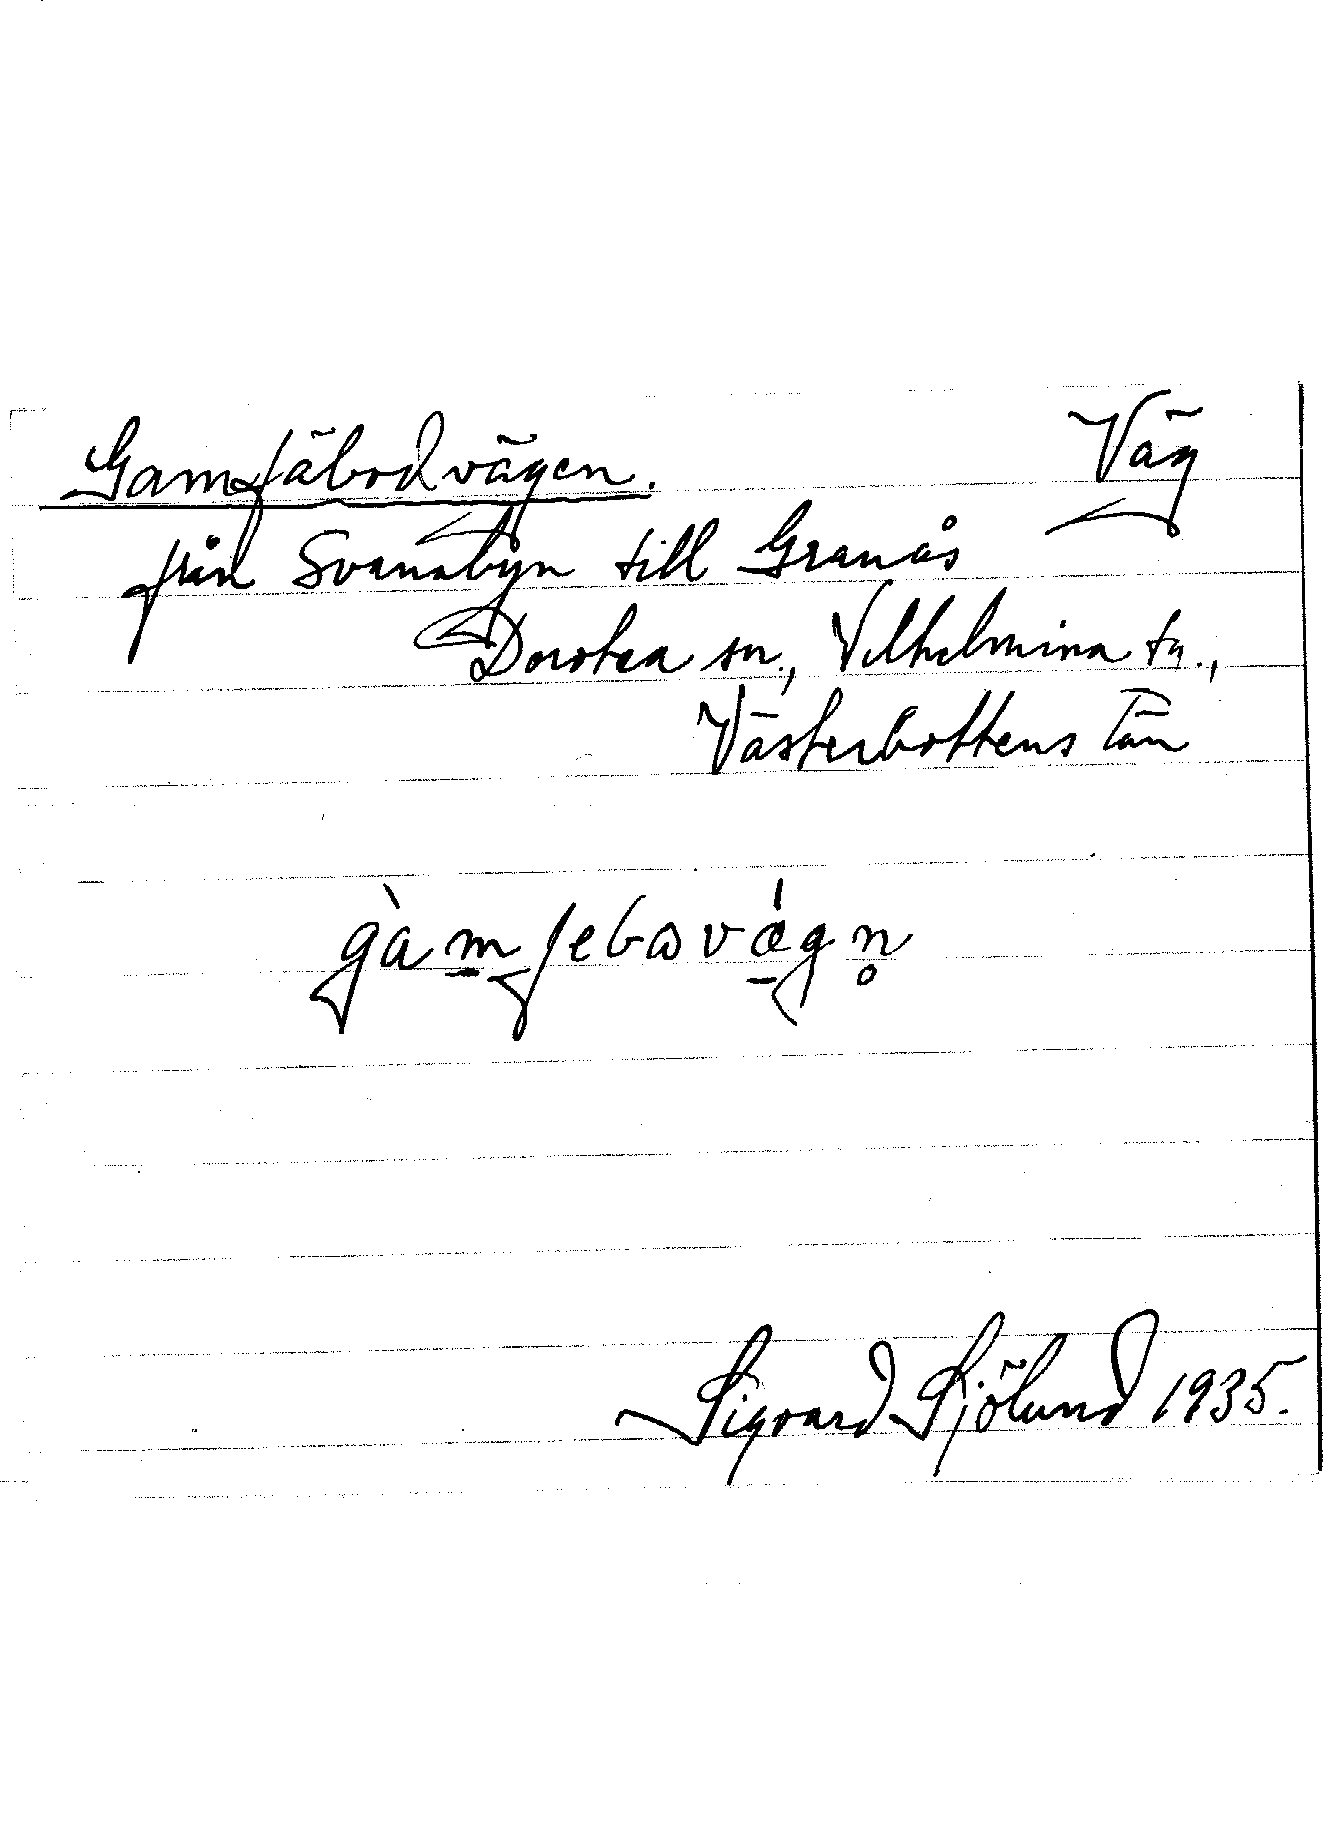 Gamfäbodvägen. Väg
från Svanabyn till Granås
Dorotea sn., Vilhelmina tg.,
Västerbottens län
Sigvard Sjölund 1935.